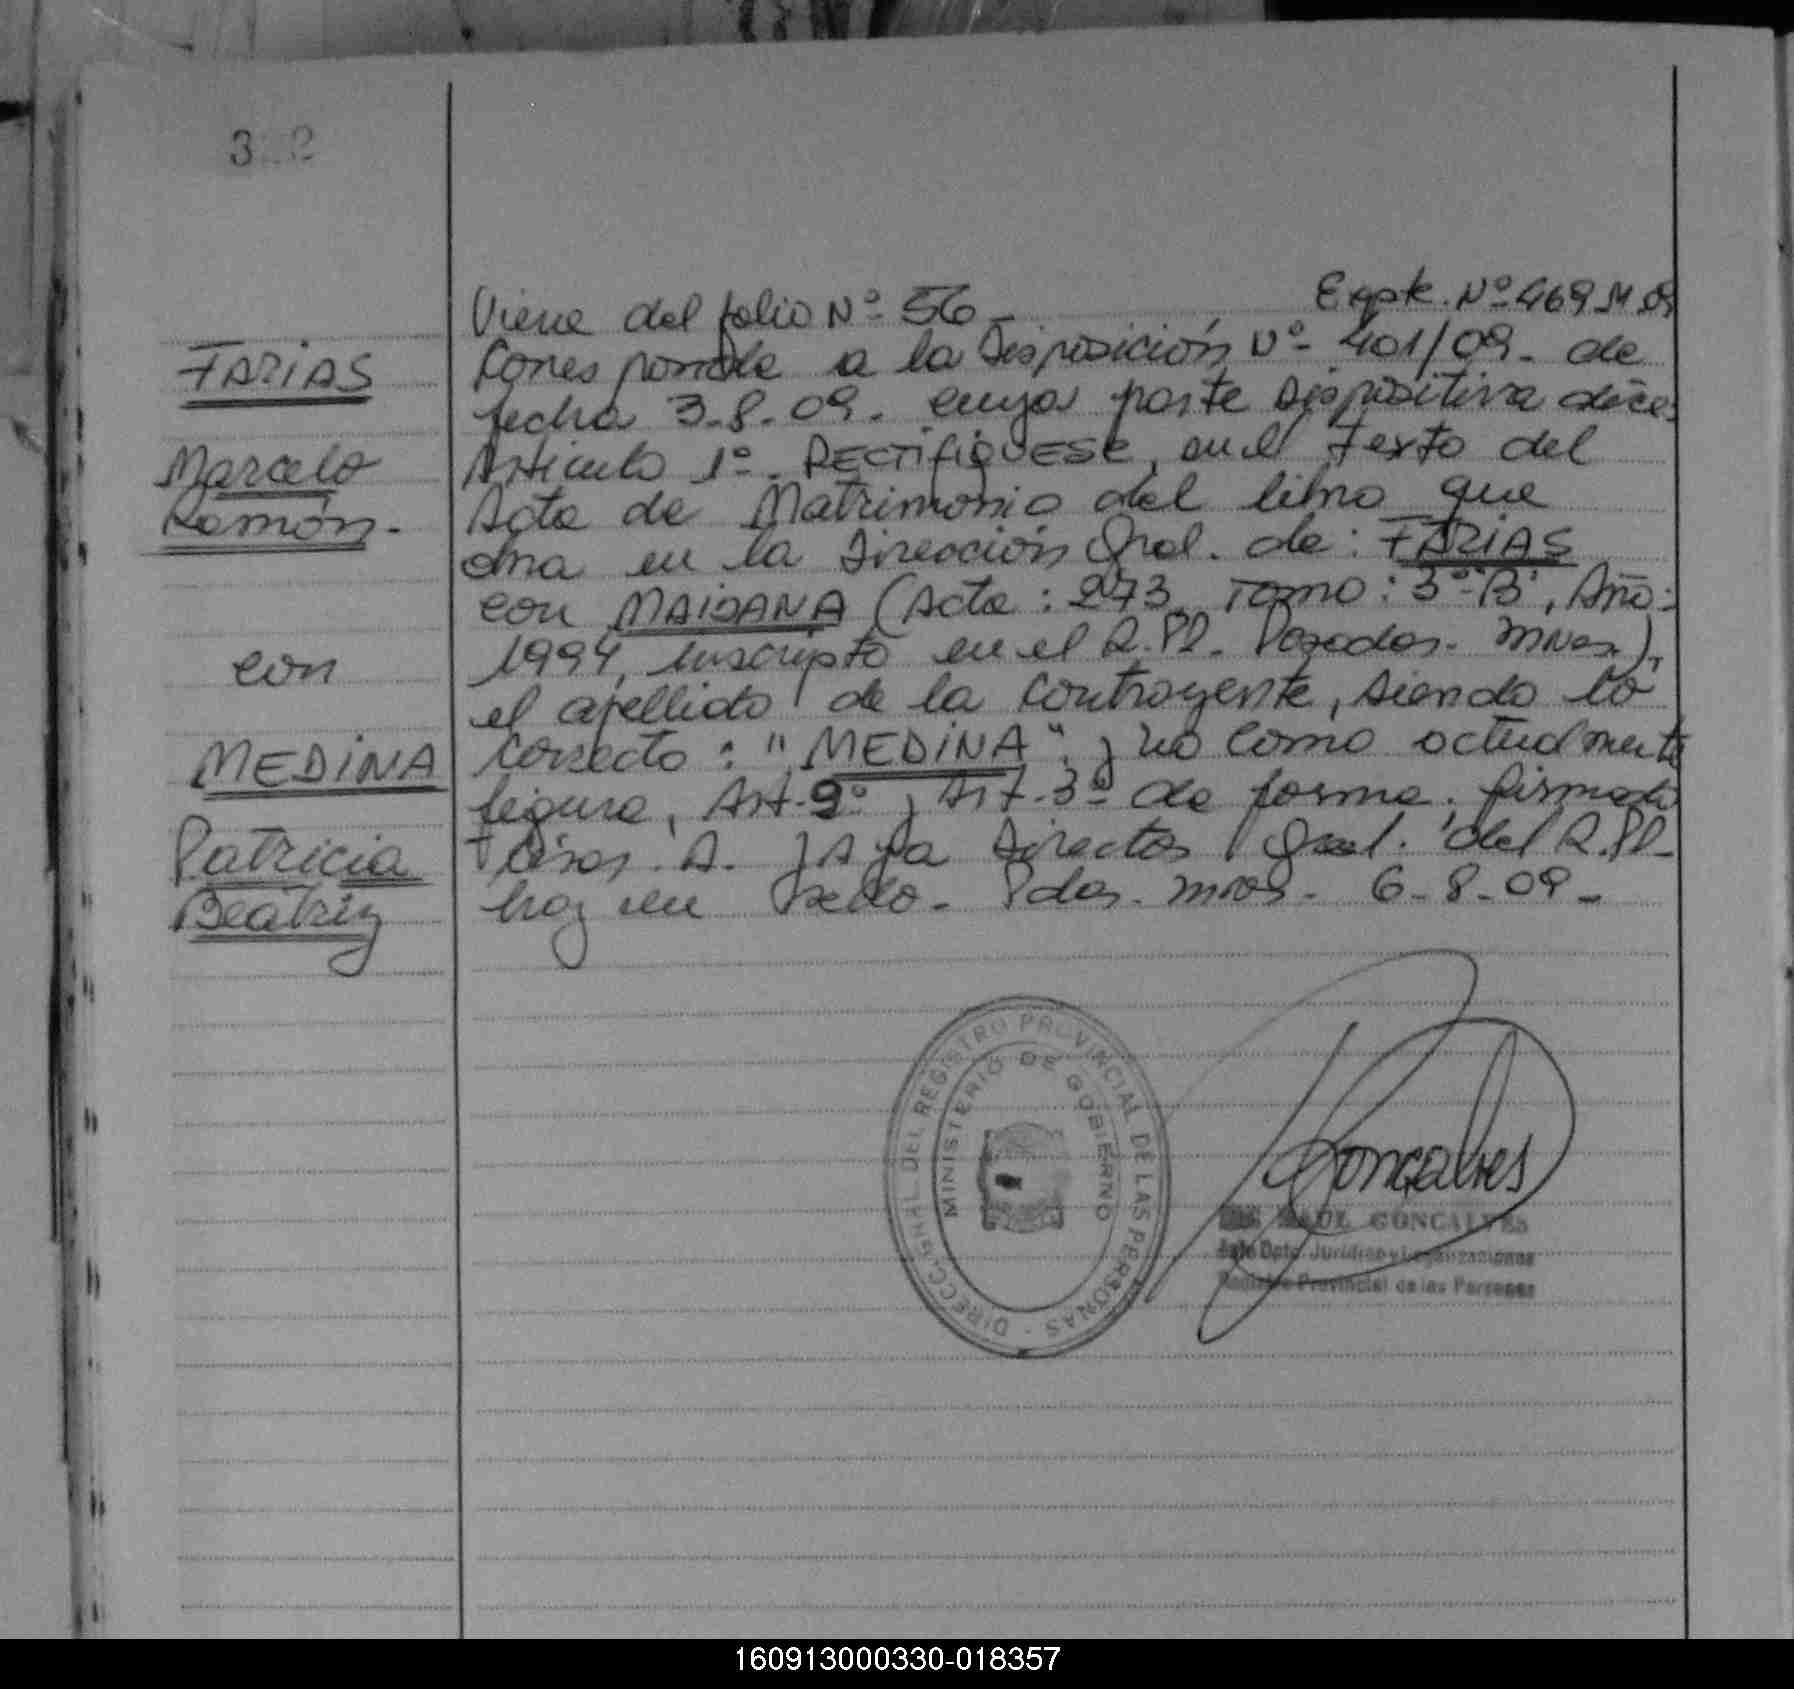 Viene del folio Nº 56 - Expte. Nº 469 M 09
FARIAS
Corresponde a la Disposición Nº 401/09. de
fecha 3-8-09. cuya parte Dispositiva dice:
Marcelo
Articulo 1º. RECTIFIQUESE, en el Texto del
Ramón.-
Acta de Matrimonio del libro que
obra en la Dirección Gral. de: FARIAS
con MAIDANA (Acta: 273, Tomo: 3º-"B", Año:
con
1994, inscripto en el R.P.P. Posadas. Mnes.),
el apellido de la contrayente, siendo lo
MEDINA
correcto: "MEDINA" y no como actualmente
figura, Art. 2º y Art. 3º de forma. firmado
Patricia
A. Director Gral. del R.P.P.
Beatriz
hoy en sello. Pdas. Mnes. 6-8-09-
DIRECC. GRAL DEL REGISTRO PROVINCIAL DE LAS PERSONAS
MINISTERIO DE GOBIERNO
Goncalves
RAUL GONCALVES
Jefe Dpto. Juridico y Legalizaciones
Registro Provincial de las Personas
160913000330-018357